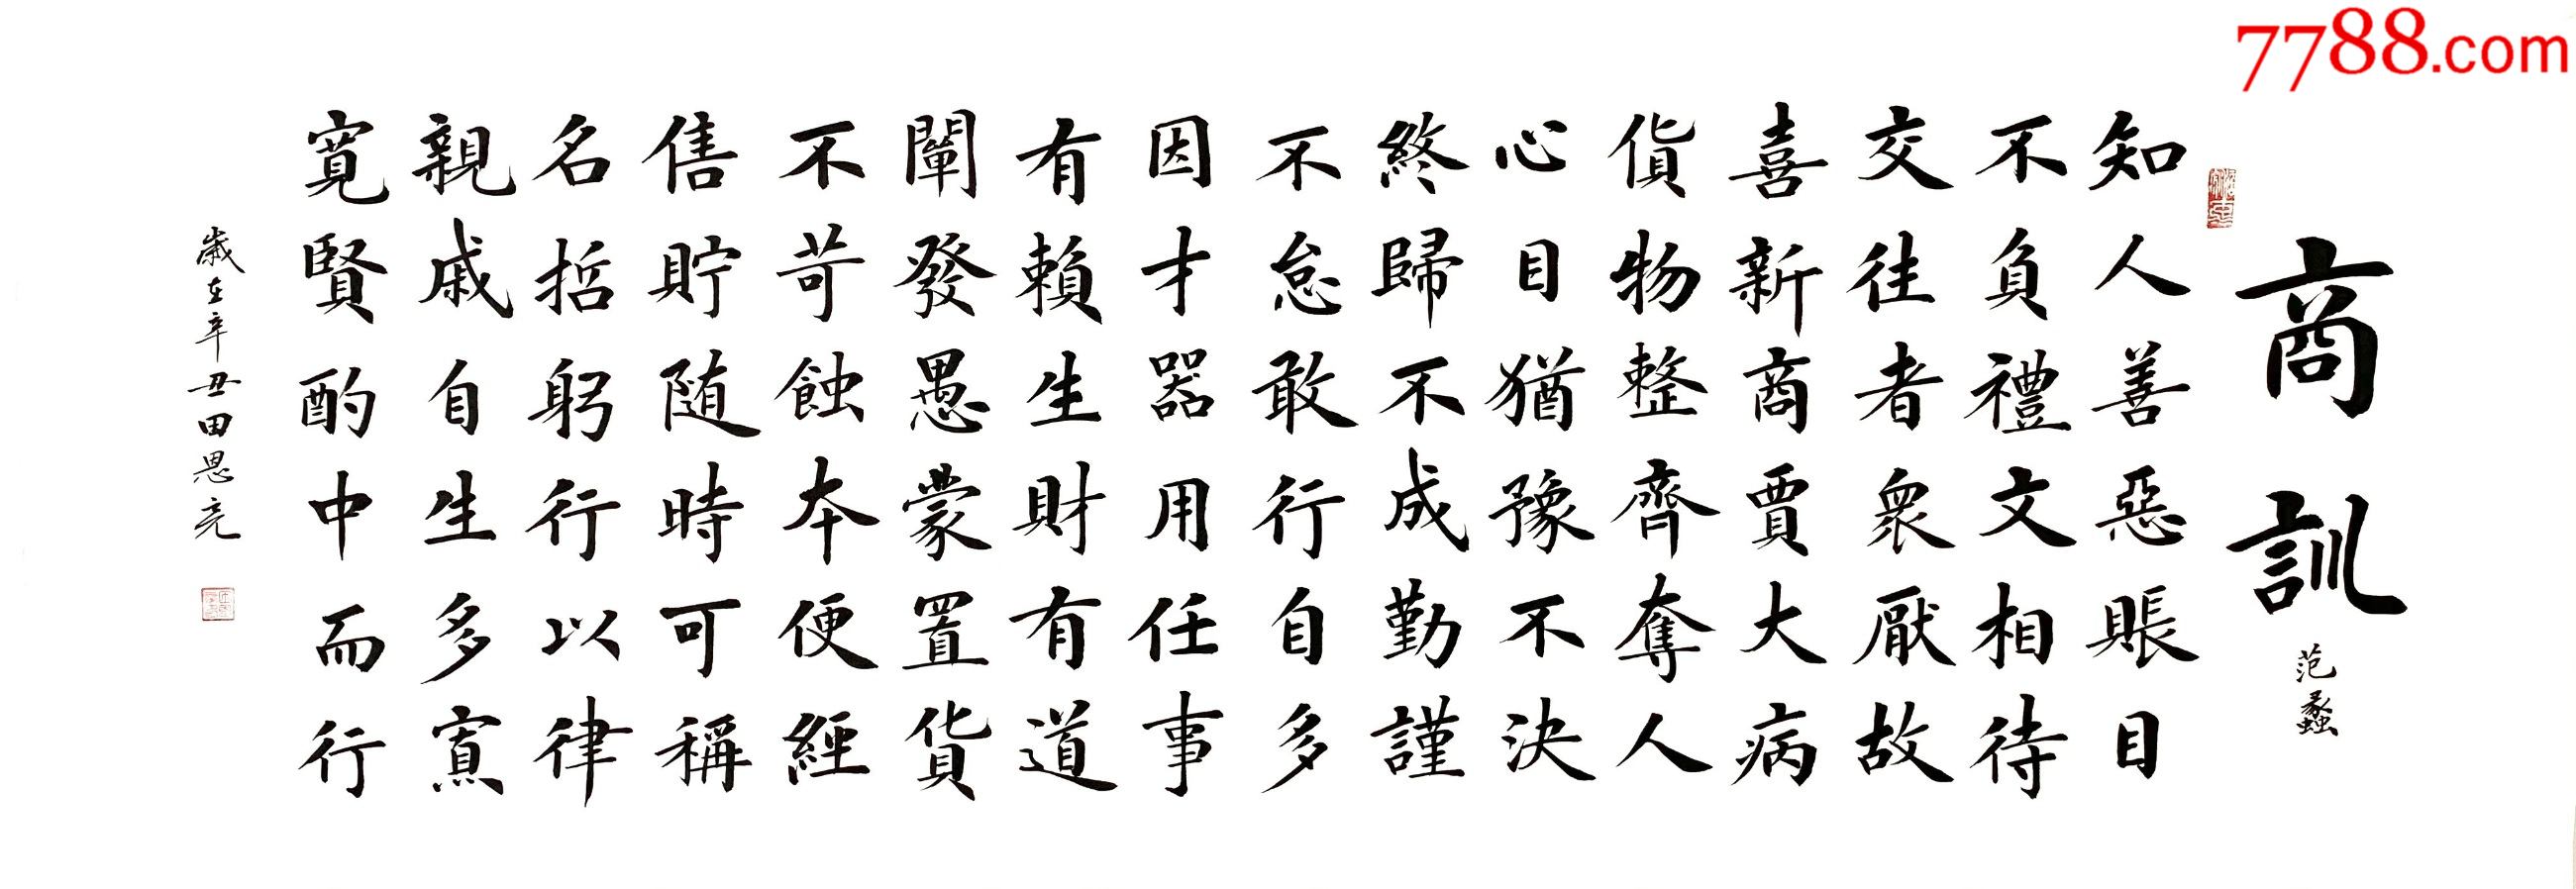 7788.com
商訓
范蠡
知人善惡賬目
不負禮文相待
交往者衆厭故
喜新商賈大病
貨物整齊奪人
心目猶豫不決
終歸不成勤謹
不怠敢行自多
因才器用任事
有賴生財有道
闡發愚蒙置貨
不苛蝕本便經
售貯随時可稱
名哲躬行以律
親戚自生多寡
寬賢酌中而行
歲在辛丑田恩亮